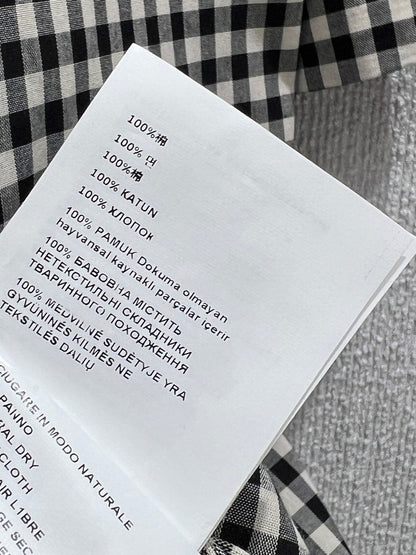 100%棉
100% 면
100%棉
100% KATUN
100% ХЛОПОК
100% PAMUK Dokuma olmayan
hayvansal kaynaklı parçalar içerir
100% БАВОВНА МІСТИТЬ
НЕТЕКСТИЛЬНІ СКЛАДНИКИ
ТВАРИННОГО ПОХОДЖЕННЯ
100% MEDVILNĖ SUDĖTYJE YRA
GYVŪNINĖS KILMĖS NE
TEKSTILĖS DALIŲ
CIUGARE IN MODO NATURALE
PANNO
DRY
CLOTH
AIR LIBRE
SEC